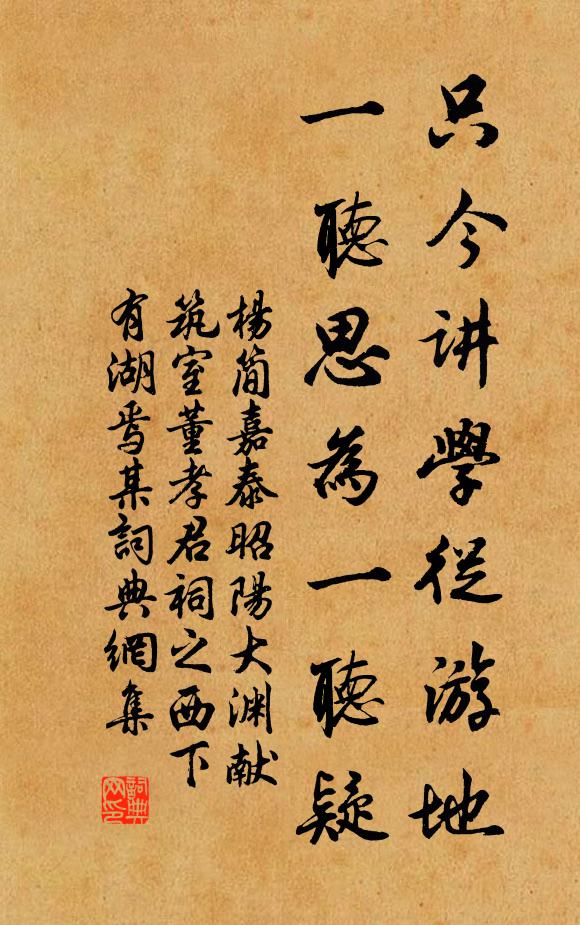 只今讲學從游地
一聽思為一聽疑
楊简嘉泰昭陽大渊献
筑室董孝君祠之西下
有湖焉某詞典網集
詞典網印